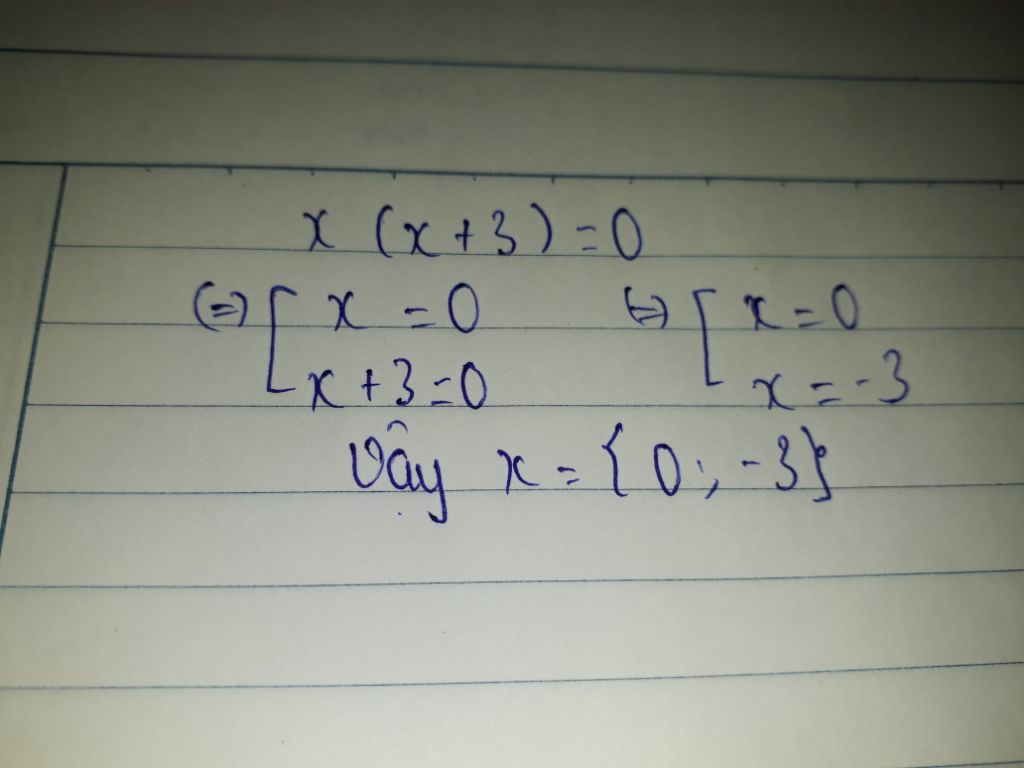 x (x+3)=0
(=) [ x = 0 (=) [ x=0
x+3=0 x=-3
Vậy x={0;-3}